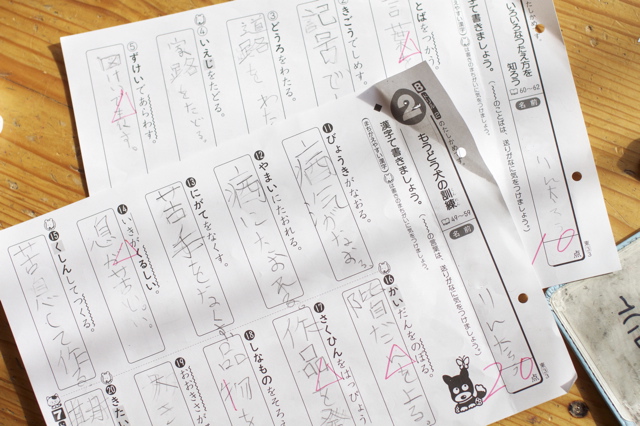 いろいろなつたえ方を
知ろう
60〜62
名前
りんたろう
10
点
漢字で書きましょう。
とばをつかう。
②きごうでしめす。
記号で
③どうろをわたる。
道路をわた
④いえじをたどる。
家路をたどる。
⑤ずけいであらわす。
2
もうどう犬の訓練
49〜59
名前
りんたろう
20
点
漢字で書きましょう。
まちがえやすい漢字
⑪びょうきがなおる。
病気がなおる。
⑫やまいにたおれる。
病にたおれる
⑬にがてをなくす。
苦手をなくす
⑭いきがくるしい。
息が苦しい。
⑮くしんしてつくる。
苦心して作る
⑯かいだんをのぼる。
階だんを上る。
⑰さくひんをはっぴょう
作品を発
⑱しなものをそろえ
品物を
⑲おおきさが
大きさ
⑳きたい
期
7